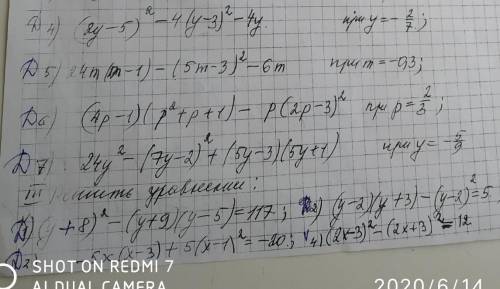 Д 4) (2y-5)² - 4(y-3)² - 4y при y = - 2/7;
Д 5) 24m(m-1) - (5m-3)² - 6m при m = -0,3;
Д 6) (4p-1)(p²+p+1) - p(2p-3)² при p = 2/3;
Д 7) 24y² - (7y-2)² + (5y-3)(5y+1) при y = - 5/9
III уравнении:
Д 1) (y+8)² - (y+9)(y-5) = 117; 2) (y-2)(y+3) - (y-2)² = 5
Д 5x(x-3) + 5(x-1)² = -20; 4) (2x-3)² - (2x+3)² = 12
SHOT ON REDMI 7
AI DUAL CAMERA
2020/6/14